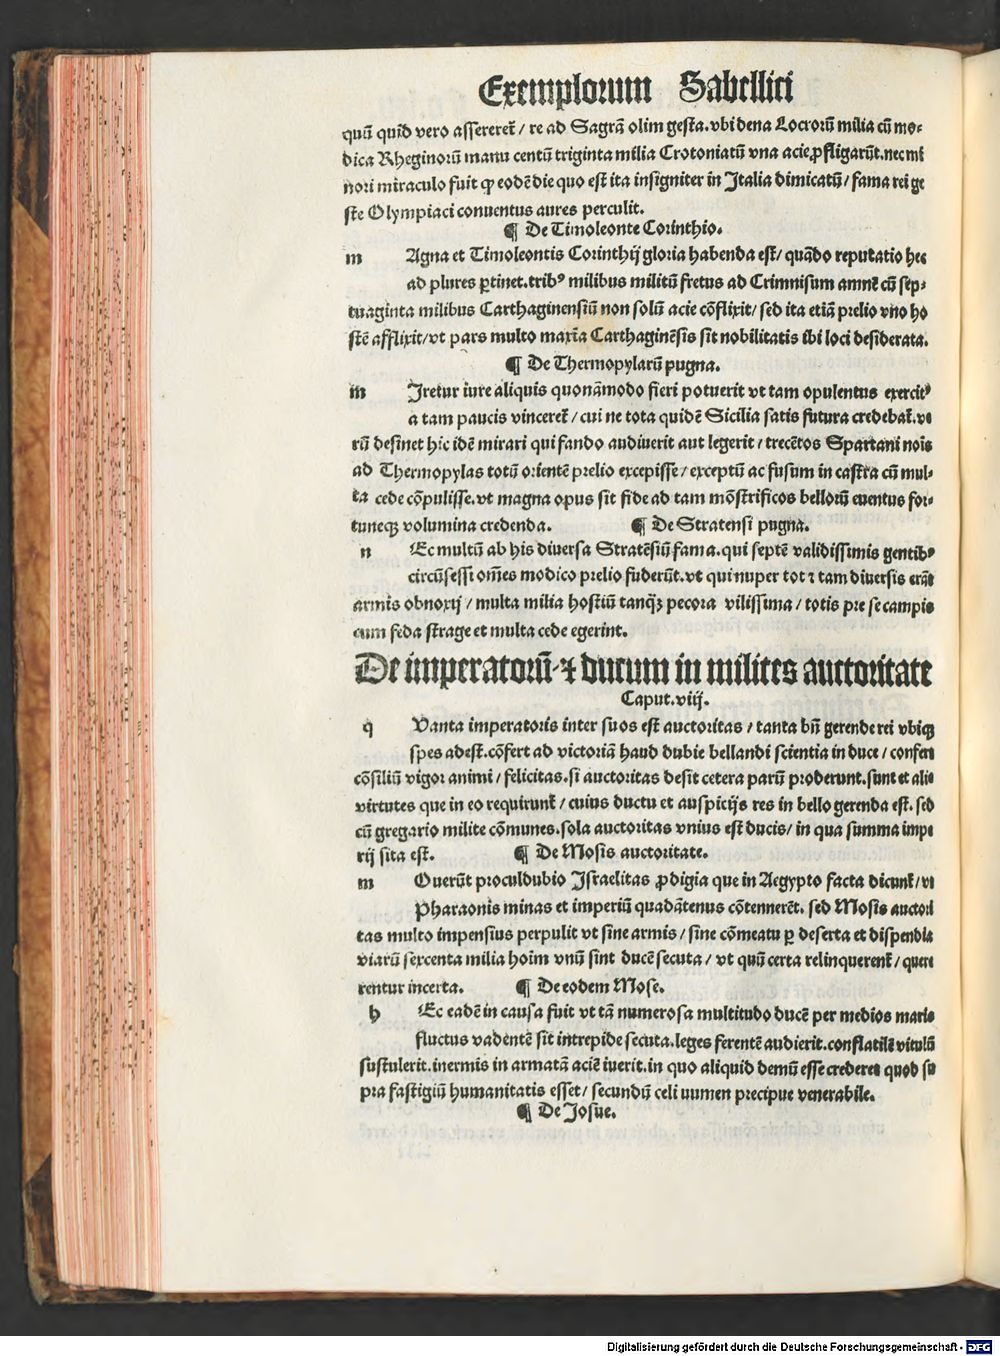 Exemplorum Sabellici
quū quid vero assereret̄ / re ad Sagrā olim gesta. vbi dena Locrorū milia cū mo⸗
dica Rheginorū manu centū triginta milia Crotoniatū vna acie ꝓfligarūt. nec mi
nori miraculo fuit ꝙ eodē die quo est ita insigniter in Italia dimicatū / fama rei ge
ste Olympiaci conuentus aures perculit.
¶ De Timoleonte Corinthio.
m Agna et Timoleontis Corinthij gloria habenda est / quādo reputatio hec
ad plures ꝑtinet. tribꝰ milibus militū fretus ad Crimnisum amnē cū sep⸗
tuaginta milibus Carthaginensiū non solū acie cōflixit / sed ita etiā prelio vno ho
stē afflixit / vt pars multo maxīa Carthaginēsis sit nobilitatis ibi loci desiderata.
¶ De Thermopylarū pugna.
m Iretur iure aliquis quonāmodo fieri potuerit vt tam opulentus exercitꝰ
a tam paucis vinceret̄ / cui ne tota quidē Sicilia satis futura credebat̄. ve
rū desinet hic idē mirari qui fando audiuerit aut legerit / trecētos Spartani nois
ad Thermopylas totū orientē prelio excepisse / exceptū ac fusum in castra cū mul⸗
ta cede cōpulisse. vt magna opus sit fide ad tam mōstrificos bellorū euentus for⸗
tuneqꝫ volumina credenda. ¶ De Stratensi pugna.
n Ec multū ab his diuersa Stratēsiū fama. qui septē validissimis gentibꝰ
circūsessi om̄es modico prelio fuderūt. vt qui nuper tot ⁊ tam diuersis erāt
armis obnoxij / multa milia hostiū tanqꝫ̄ pecora vilissima / totis pre se campis
cum feda strage et multa cede egerint.
De imperatorū ⁊ ducum in milites auctoritate
Caput. viij.
q Vanta imperatoris inter suos est auctoritas / tanta bn̄ gerende rei vbiqꝫ
spes adest. cōfert ad victoriā haud dubie bellandi scientia in duce / confert
cōsiliū vigor animi / felicitas. si auctoritas desit cetera parū proderunt. sunt et alie
virtutes que in eo requirunt̄ / cuius ductu et auspicijs res in bello gerenda est. sed
cū gregario milite cōmunes. sola auctoritas vnius est ducis / in qua summa impe
rij sita est. ¶ De Mosis auctoritate.
m Ouerūt proculdubio Israelitas ꝓdigia que in Aegypto facta dicunt̄ / vt
Pharaonis minas et imperiū quadātenus cōtennerēt. sed Mosis auctori
tas multo impensius perpulit vt sine armis / sine cōmeatu ꝑ deserta et dispendia
viarū sexcenta milia hoīm vnū sint ducē secuta / vt quū certa relinquerent̄ / quere
rentur incerta. ¶ De eodem Mose.
h Ec eadē in causa fuit vt tā numerosa multitudo ducē per medios maris
fluctus vadentē sit intrepide secuta. leges ferentē audierit. conflatilē vitulū
sustulerit. inermis in armatā aciē iuerit. in quo aliquid demū esse crederet quod su
pra fastigiū humanitatis esset / secundū celi numen precipue venerabile.
¶ De Josue.
Digitalisierung gefördert durch die Deutsche Forschungsgemeinschaft - DFG